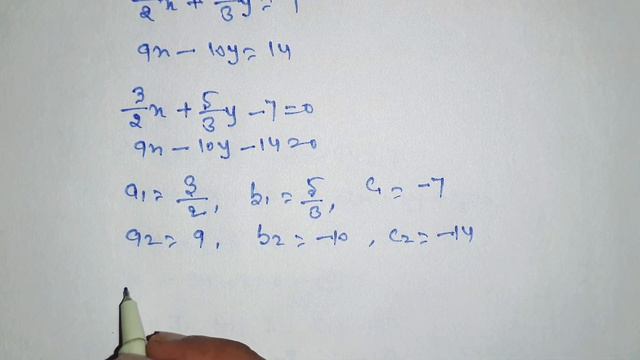 3/2 x + 5/3 y = 7
9x - 10y = 14
3/2 x + 5/3 y - 7 = 0
9x - 10y - 14 = 0
a1 = 3/2, b1 = 5/3, c1 = -7
a2 = 9, b2 = -10, c2 = -14